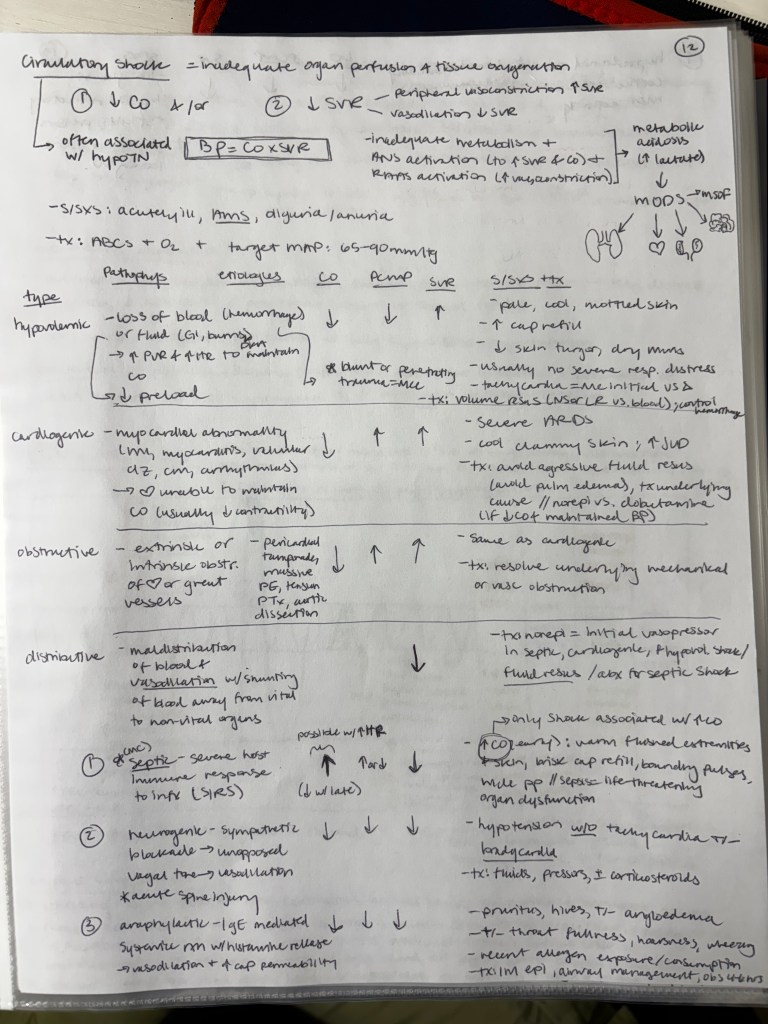 12
Circulatory Shock = inadequate organ perfusion & tissue oxygenation
① ↓ CO &/or ② ↓ SVR – peripheral vasoconstriction ↑ SVR
– vasodilation ↓ SVR
↳ often associated w/ hypoTN
BP = CO x SVR
- inadequate metabolism +
ANS activation (to ↑ SVR & CO) +
RAAS activation (↑ vasoconstriction)
→ metabolic
acidosis
(↑ lactate)
↓
MODS → MSOF
- s/sxs: acutely ill, AMS, oliguria/anuria
- tx: ABCs + O2 + target MAP: 65-90mmHg
type
Pathophys etiologies CO PCWP SVR s/sxs + tx
hypovolemic - loss of blood (hemorrhage)
or fluid (GI, burns)
→ ↑ PVR & ↑ HR to maintain
CO
↓ preload
* blunt or penetrating
trauma = MCC
↓ ↓ ↑
- pale, cool, mottled skin
- ↑ cap refill
- ↓ skin turgor, dry mms
- usually no severe resp. distress
- tachycardia = MC initial VS Δ
- tx: volume resus (NS or LR vs. blood); control
hemorrhage
cardiogenic - myocardial abnormality
(MI, myocarditis, valvular
dz, cm, arrhythmias)
→ ♡ unable to maintain
CO (usually ↓ contractility)
↓ ↑ ↑
- severe ARDS
- cool clammy skin; ↑ JVD
- tx: avoid aggressive fluid resus
(avoid pulm edema), tx underlying
cause // norepi vs. dobutamine
(if ↓ CO + maintained BP)
obstructive - extrinsic or
intrinsic obstr.
of ♡ or great
vessels
- pericardial
tamponade,
massive
PE, tension
PTx, aortic
dissection
↓ ↑ ↑
- same as cardiogenic
- tx: resolve underlying mechanical
or vasc obstruction
distributive - maldistribution
of blood &
vasodilation w/ shunting
of blood away from vital
to non-vital organs
↓
- tx: norepi = initial vasopressor
in septic, cardiogenic, & hypovol shock/
fluid resus / abx for septic shock
① * (MC)
septic - severe host
immune response
to infx (SIRS)
possible w/ ↑ HR
↑ ↑ or ↓ ↓
(↓ w/ late)
→ only shock associated w/ ↑ CO
- ↑ CO (early): warm flushed extremities
+ skin, brisk cap refill, bounding pulses,
wide pp // sepsis = life threatening
organ dysfunction
② neurogenic - sympathetic
blockade → unopposed
vagal tone → vasodilation
* acute spine injury
↓ ↓ ↓
- hypotension w/o tachycardia +/-
bradycardia
- tx: fluids, pressors, ± corticosteroids
③ anaphylactic - IgE mediated
systemic rxn w/ histamine release
→ vasodilation + ↑ cap permeability
↓ ↓ ↓
- pruritus, hives, +/- angioedema
- +/- throat fullness, hoarsness, wheezing
- recent allergen exposure/consumption
- tx: IM epi, airway management, obs 4-6 hrs